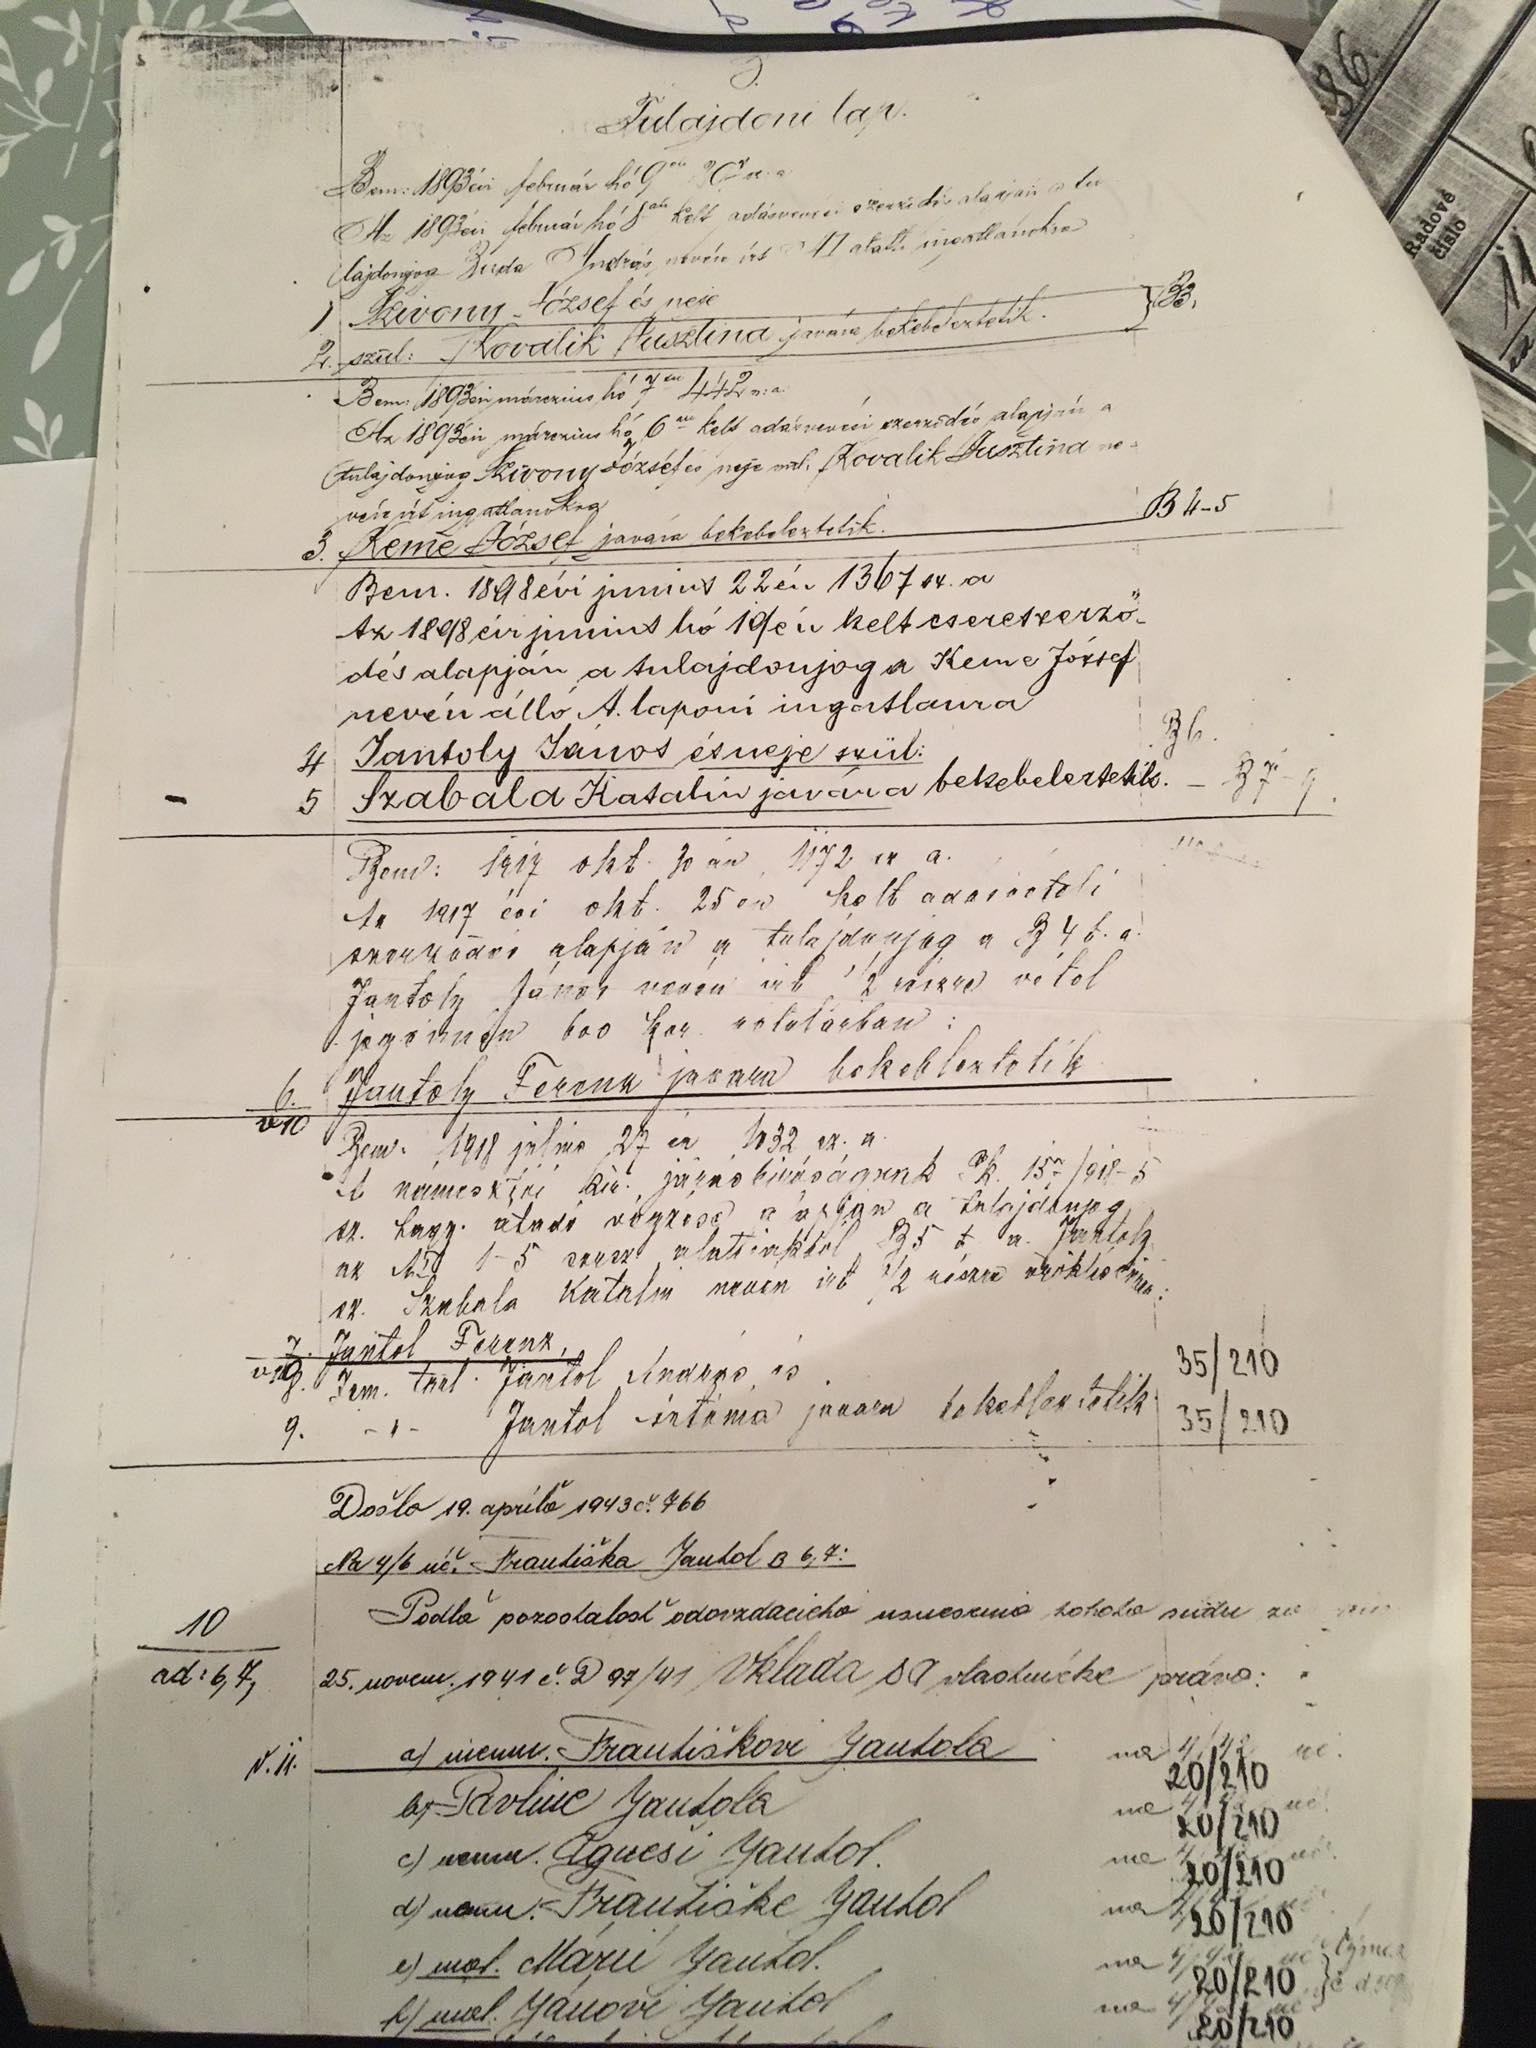 Tulajdoni lap.
Bem: 1893 évi február hó 9
Az 1893 évi február hó 8 kelt adásvevési szerződés alapján a tu
lajdonjog Buda András nevén írt A I alatti ingatlanokra
1) Szivony József és neje
2. szül: Kovalik Jusztina javára bekebeleztetik. } B3.
Bem: 1893 évi márczius hó 7 én 442 sz. a.
Az 1893 évi márczius hó 6 án kelt adásvevési szerződés alapján a
tulajdonjog Szivony József és neje szül. Kovalik Jusztina ne-
vén írt ingatlanokra B 4-5
3. Keme József javára bekebeleztetik.
Bem. 1898 évi junius 22 én 1367 sz. a
Az 1898 évi junius hó 19 én kelt csereszerző-
dés alapján a tulajdonjog a Keme József
nevén álló A. laponi ingatlanra
4 Jantoly János és neje szül: B 6.
5 Szabala Katalin javára bekebeleztetik. - B 7-9.
Bem: 1917 okt. 30 án 1172 sz a.
Az 1917 évi okt. 25 én kelt adásvételi
szerződés alapján a tulajdonjog a B 4 t. a.
Jantoly János nevén írt 1/2 részre vétel
jogcímén 600 kor. vételárban :
6. Jantoly Ferenz javára bekebleztetik
v 10
Bem. 1918 julius 27 én 1032 sz. a.
A námesztói kir. járásbíróságnak Pk. /918-5
sz. hagy. átadó végzése alapján a tulajdonjog
az A I 1-5 sorsz. alattiakból B 5 t. a. Jantoly
sz. Szabala Katalin nevén írt 1/2 részre öröklés címén:
7. Jantol Ferenz,
v 10
8. Jantol András és 35/210
9. -"- Jantol javára bekebleztetik 35/210
Došlo 19. apríla 1943 č. 766
Na 4/6 úč. Františka Jantol B 6,7:
10 Podľa pozostalosť odovzdacieho usnesenia tohoto súdu zo
ad: 6,7, 25. novem. 1941 č. D 97/41 Vkladá sa vlastnícke právo:
a) menov. Františkovi Jantola na 4/42 úč. 20/210
b) Pavline Jantola na 20/210
c) menov. Agneši Jantol. na 20/210
d) menov. Františke Jantol na 20/210
e) mal. Márii Jantol. na 20/210
f) mal. Jánovi Jantol na 20/210
Radové
číslo
86.